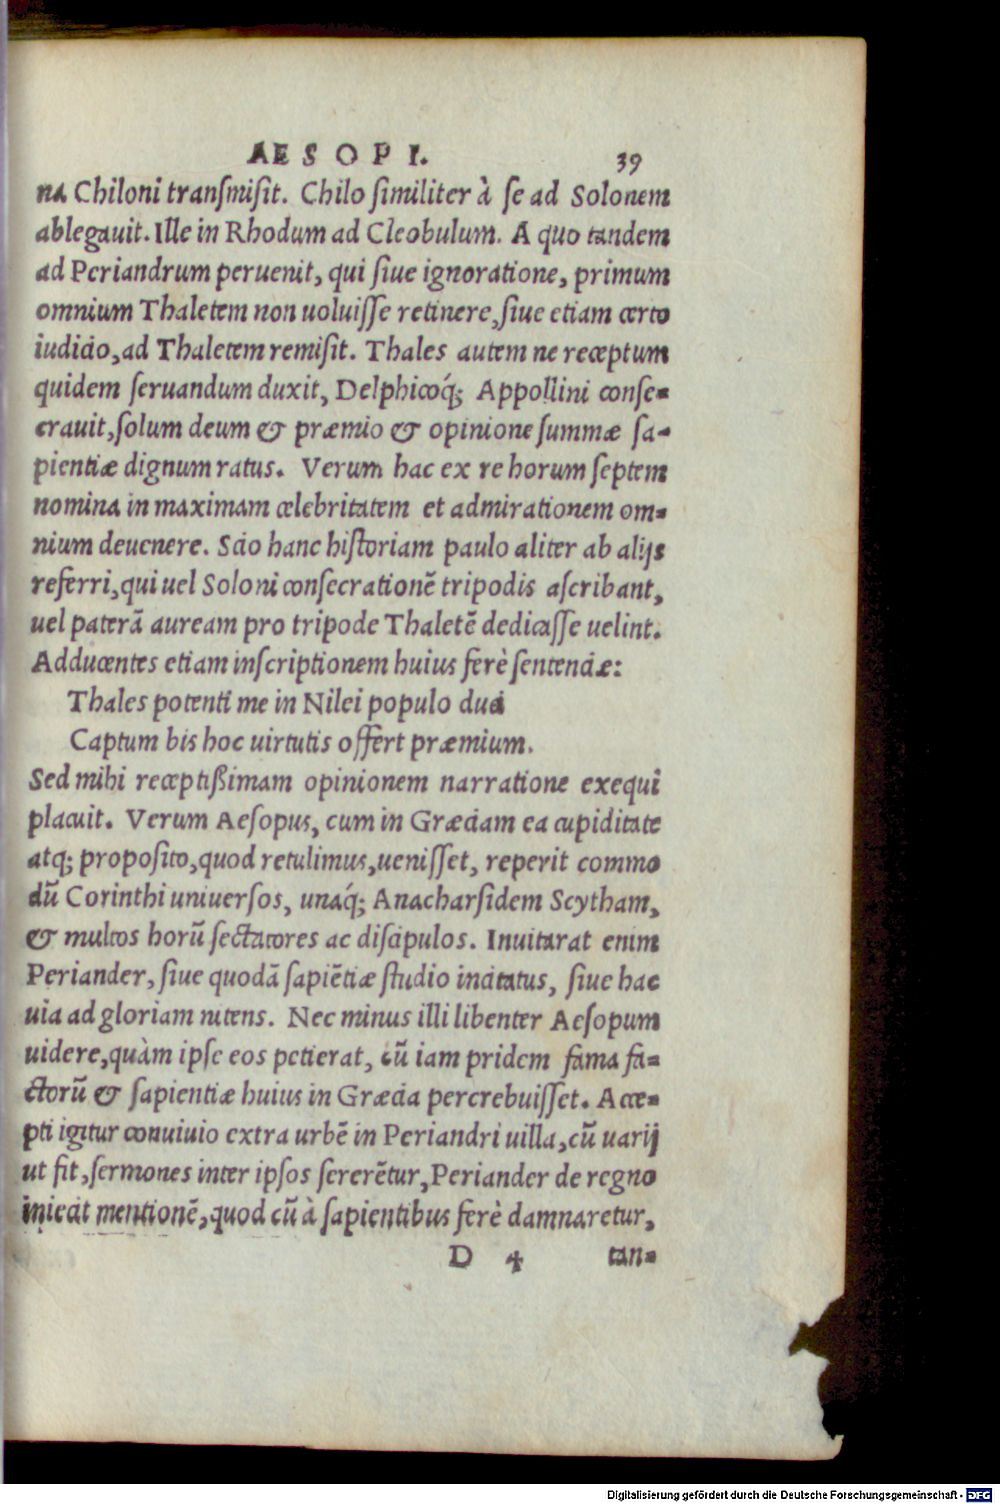 AESOPI. 39
na Chiloni transmiſit. Chilo ſimiliter à ſe ad Solonem
ablegauit. Ille in Rhodum ad Cleobulum. A quo tandem
ad Periandrum peruenit, qui ſiue ignoratione, primum
omnium Thaletem non uoluiſſe retinere, ſiue etiam certo
iudicio, ad Thaletem remiſit. Thales autem ne receptum
quidem ſeruandum duxit, Delphicoq́; Appollini conſe-
crauit, ſolum deum & præmio & opinione ſummæ ſa-
pientiæ dignum ratus. Verum hac ex re horum ſeptem
nomina in maximam celebritatem et admirationem om-
nium deuenere. Scio hanc hiſtoriam paulo aliter ab alijs
referri, qui uel Soloni conſecrationẽ tripodis aſcribant,
uel paterã auream pro tripode Thaletẽ dedicaſſe uelint.
Adducentes etiam inſcriptionem huius ferè ſentenciæ:
Thales potenti me in Nilei populo duci
Captum bis hoc uirtutis offert præmium.
Sed mihi receptißimam opinionem narratione exequi
placuit. Verum Aeſopus, cum in Græciam ea cupiditate
atq; propoſito, quod retulimus, ueniſſet, reperit commo
dũ Corinthi uniuerſos, unaq́; Anacharſidem Scytham,
& multos horũ ſectatores ac diſcipulos. Inuitarat enim
Periander, ſiue quodã ſapiẽtiæ ſtudio incitatus, ſiue hac
uia ad gloriam nitens. Nec minus illi libenter Aeſopum
uidere, quàm ipſe eos petierat, cũ iam pridem fama fa-
ctorũ & ſapientiæ huius in Græcia percrebuiſſet. Acce-
pti igitur conuiuio extra urbẽ in Periandri uilla, cũ uarij
ut fit, ſermones inter ipſos ſererẽtur, Periander de regno
iniecit mentionẽ, quod cũ à ſapientibus ferè damnaretur,
D 4 tan-
Digitalisierung gefördert durch die Deutsche Forschungsgemeinschaft - DFG